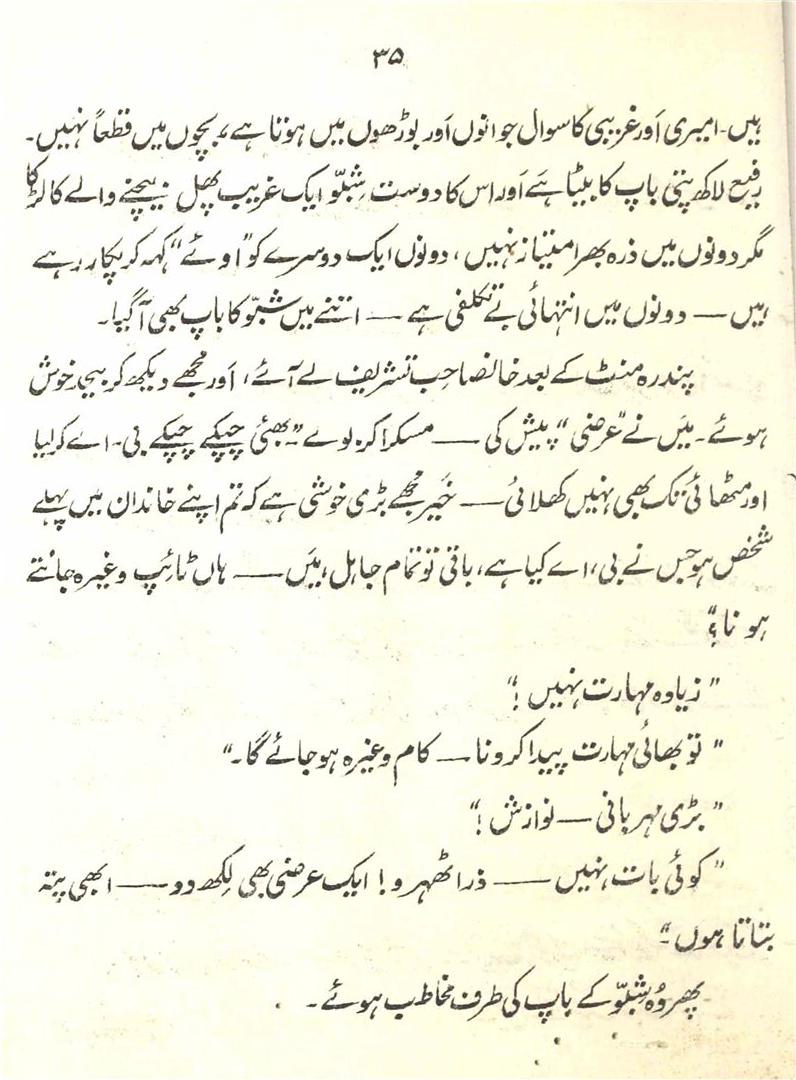 ۳۵
ہیں۔ امیری اَور غریبی کا سوال جوانوں اَور بوڑھوں میں ہوتا ہے، بچوں میں قطعاً نہیں۔
رفیع لاکھ پتی باپ کا بیٹا ہَے اَور اس کا دوست شِبلّو ایک غریب پھل بیچنے والے کا لڑکا
مگر دونوں میں ذرہ بھر امتیاز نہیں، دونوں ایک دوسرے کو "اوئے" کہہ کر پکار رہے
ہیں — دونوں میں انتہائی بے تکلفی ہے — اتنے میں شبّو کا باپ بھی آگیا۔
پندرہ منٹ کے بعد خانصاحب تشریف لے آئے، اَور مجھے دیکھ کر بیحد خوش
ہوئے۔ میَں نے "عرضی" پیش کی — مسکرا کر بولے "بھئی چپکے چپکے بی۔ اے کرلیا
اور مٹھائی تک بھی نہیں کھلائی — خیَر مجھے بڑی خوشی ہے کہ تم اپنے خاندان میں پہلے
شخص ہو جس نے بی، اے کیا ہے، باقی تو تمام جاہل ہیَں — ہاں ٹائپ وغیرہ جانتے
ہو نا؟"
"زیادہ مہارت نہیں!"
"تو بھائی مہارت پیدا کرو نا — کام وغیرہ ہوجائے گا۔"
"بڑی مہربانی — نوازش!"
"کوئی بات نہیں — ذرا ٹھہرو! ایک عرضی بھی لِکھ دو — ابھی پتہ
بتاتا ہوں۔"
پھر وُہ شِبلّو کے باپ کی طرف مخاطب ہوئے۔